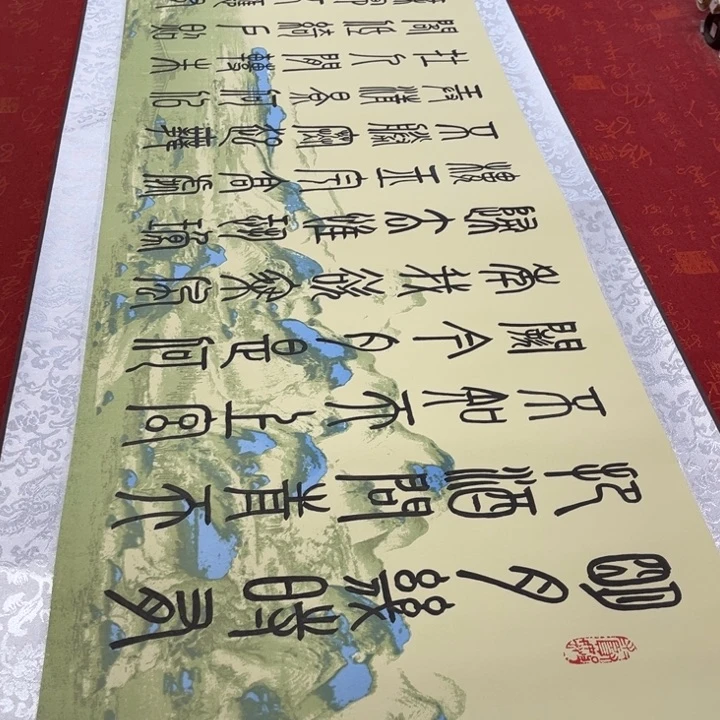 明月幾時有
把酒問青天
不知天上宮
闕今夕是何
年我欲乘風
歸去惟恐瓊
樓玉宇高處
不勝寒起舞
弄清影何似
在人間轉朱
閣低綺戶照